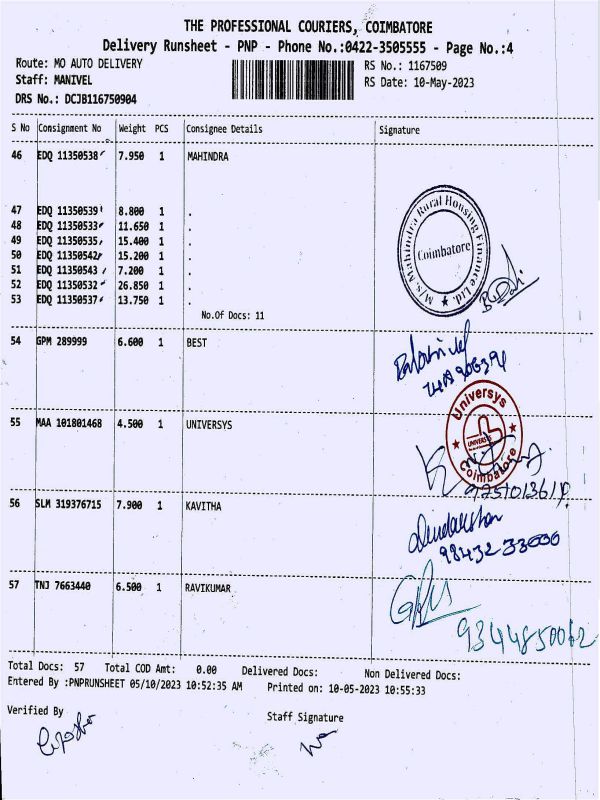 THE PROFESSIONAL COURIERS, COIMBATORE
Delivery Runsheet - PNP - Phone No.:0422-3505555 - Page No.:4
Route: MO AUTO DELIVERY RS No.: 1167509
Staff: MANIVEL RS Date: 10-May-2023
DRS No.: DCJB116750904
S No Consignment No Weight PCS Consignee Details Signature
46 EDQ 11350538 7.950 1 MAHINDRA
M/s. Mahindra Rural Housing Finance Ltd. ★
Coimbatore
47 EDQ 11350539 8.800 1 .
48 EDQ 11350533 11.650 1 .
49 EDQ 11350535 15.400 1 .
50 EDQ 11350542 15.200 1 .
51 EDQ 11350543 7.200 1 .
52 EDQ 11350532 26.850 1 .
53 EDQ 11350537 13.750 1 .
No.Of Docs: 11
54 GPM 289999 6.600 1 BEST
55 MAA 101801468 4.500 1 UNIVERSYS
Universys
UNIVERSYS
Coimbatore
56 SLM 319376715 7.900 1 KAVITHA
98432 33000
57 TNJ 7663440 6.500 1 RAVIKUMAR
9344850062
Total Docs: 57 Total COD Amt: 0.00 Delivered Docs: Non Delivered Docs:
Entered By :PNPRUNSHEET 05/10/2023 10:52:35 AM Printed on: 10-05-2023 10:55:33
Verified By Staff Signature